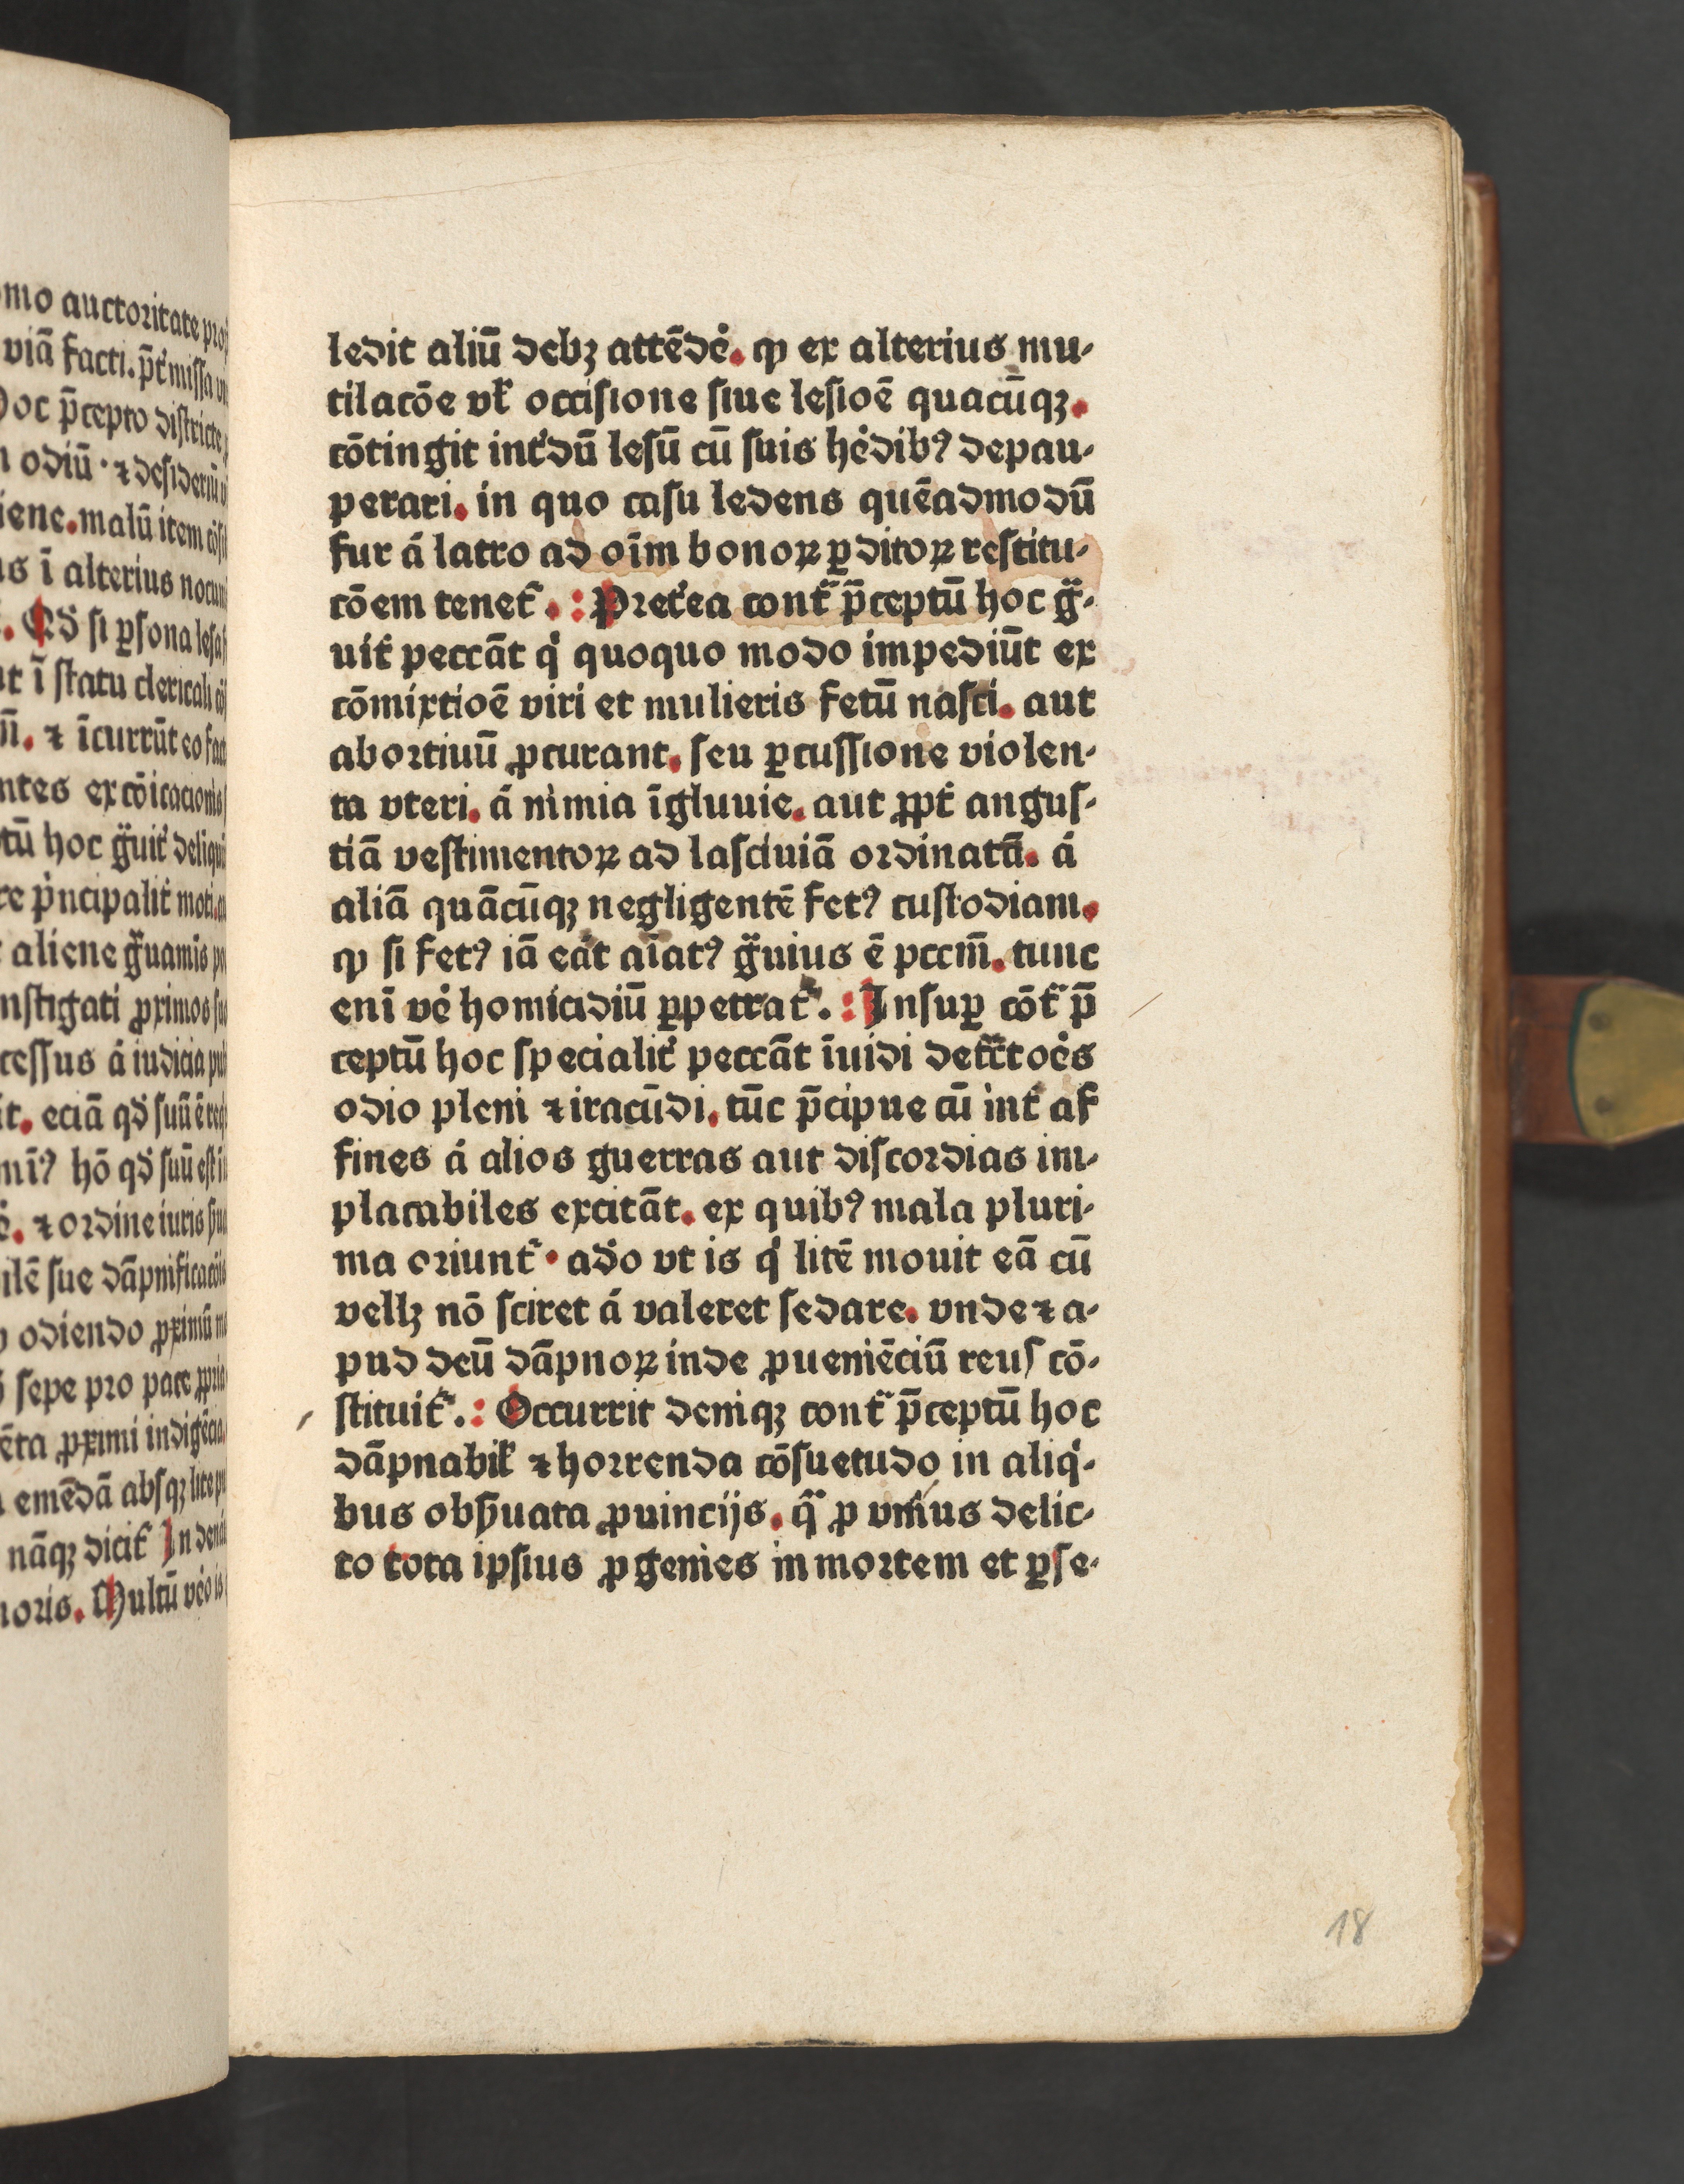 omo auctoritate
viā facti. p̄t'missa
hoc p̄cepto districte
odiū · ⁊ desideriū
iene. malū item
us ī alterius
Qd' si ꝑsona lesa
ī statu clericali
⁊ īcurrūt eo
ntes ex cōicacionis
hoc g̈uit' deliqu
p'ncipalit' moti.
aliene g̈uamis
nstigati ꝓximos
cessus á iudicia
it. eciā qd' suū ē
hō qd' suū est
⁊ ordine iuris
ilē sue dāpnificacōis
odiendo ꝓximū
sepe pro pace ꝓpria
ēta ꝓximi indigēcia.
emēdā absqꝫ lite
nāqꝫ dicit' In
noris. Multū v'o is
ledit aliū debꝫ attēde'. ꝙ ex alterius mu-
tilacōe vꝉ occisione siue lesioē quacūqꝫ.
cōtingit int'dū lesū cū suis he'dibꝰ depau-
perari. in quo casu ledens quēadmodū
fur á latro ad oīm bonoꝝ ꝑditoꝝ restitu-
cōem tenet᷑. : Pret'ea cont᷑ p̄ceptū hoc g̈-
uit' peccāt q' quoquo modo impediūt ex
cōmixtioē viri et mulieris fetū nasci. aut
abortiuū ꝓcurant. seu ꝑcussione violen-
ta vteri. á nimia īgluuie. aut ꝓpt' angus-
tiā vestimentoꝝ ad lasciuiā ordinatā. á
aliā quācūqꝫ negligentē fetꝰ custodiam.
ꝙ si fetꝰ iā eāt aīatꝰ g̈uius ē pccm̄. tunc
enī ve' homicidiū ꝑpetrat᷑. : Insuꝑ cōt᷑ p̄
ceptū hoc specialit' peccāt īuidi det᷑ctoe's
odio pleni ⁊ iracūdi. tūc p̄cipue cū int' af
fines á alios guerras aut discordias im-
placabiles excitāt. ex quibꝰ mala pluri-
ma oriunt᷑ · ad'o vt is q' litē mouit eā cū
vellꝫ nō sciret á valeret sedare. vnde ⁊ a-
pud deū dāpnoꝝ inde ꝓueniēciū reus cō-
stituit᷑. : Occurrit deniqꝫ cont᷑ p̄ceptū hoc
dāpnabiꝉ ⁊ horrenda cōsuetudo in aliq'-
bus obẜuata ꝓuincijs. q̄ ꝓ vnius delic-
to tota ipsius ꝓgenies in mortem et ꝑse-
18